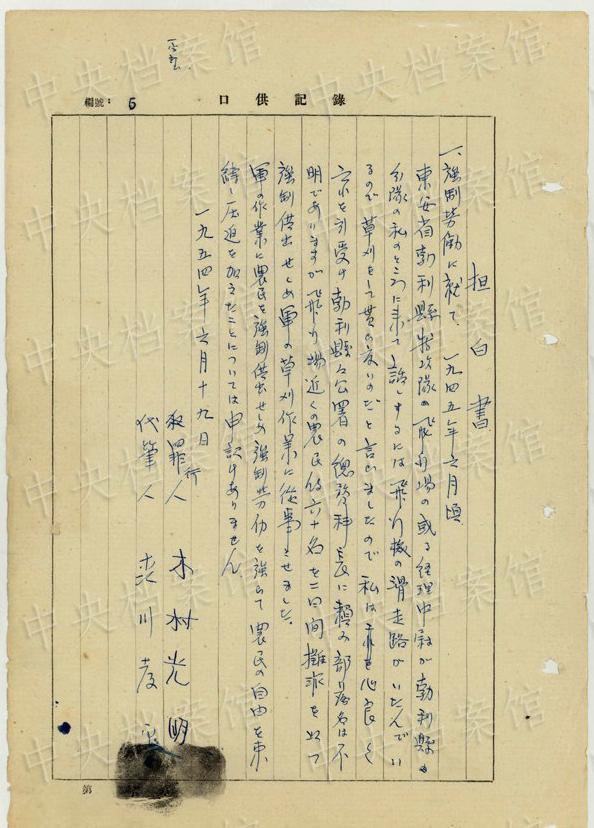 口供記錄
編號: 5
担白書
一、強制労働に就て、一九四五年六月頃
東安省勃利縣特攻隊の飛行場の或る経理中尉が勃利縣
分隊の私のところに来て話しするには飛行機の滑走路がいたんでい
るので草刈をして貰い度いのだと言いましたので私は心良く
引受け勃利縣公署の總務科長に頼み部落名は不
明でありますが飛行場近くの農民約六十名を二日間
強制供出せしめ軍の草刈作業に從事させました。
軍の作業に農民を強制供出せしめ強制労仂を強らて農民の自由を束
縛し圧迫を加えたことについては申訳けありません。
一九五四年六月十九日
犯罪行人 木村光明
代筆人
第
中央档案馆